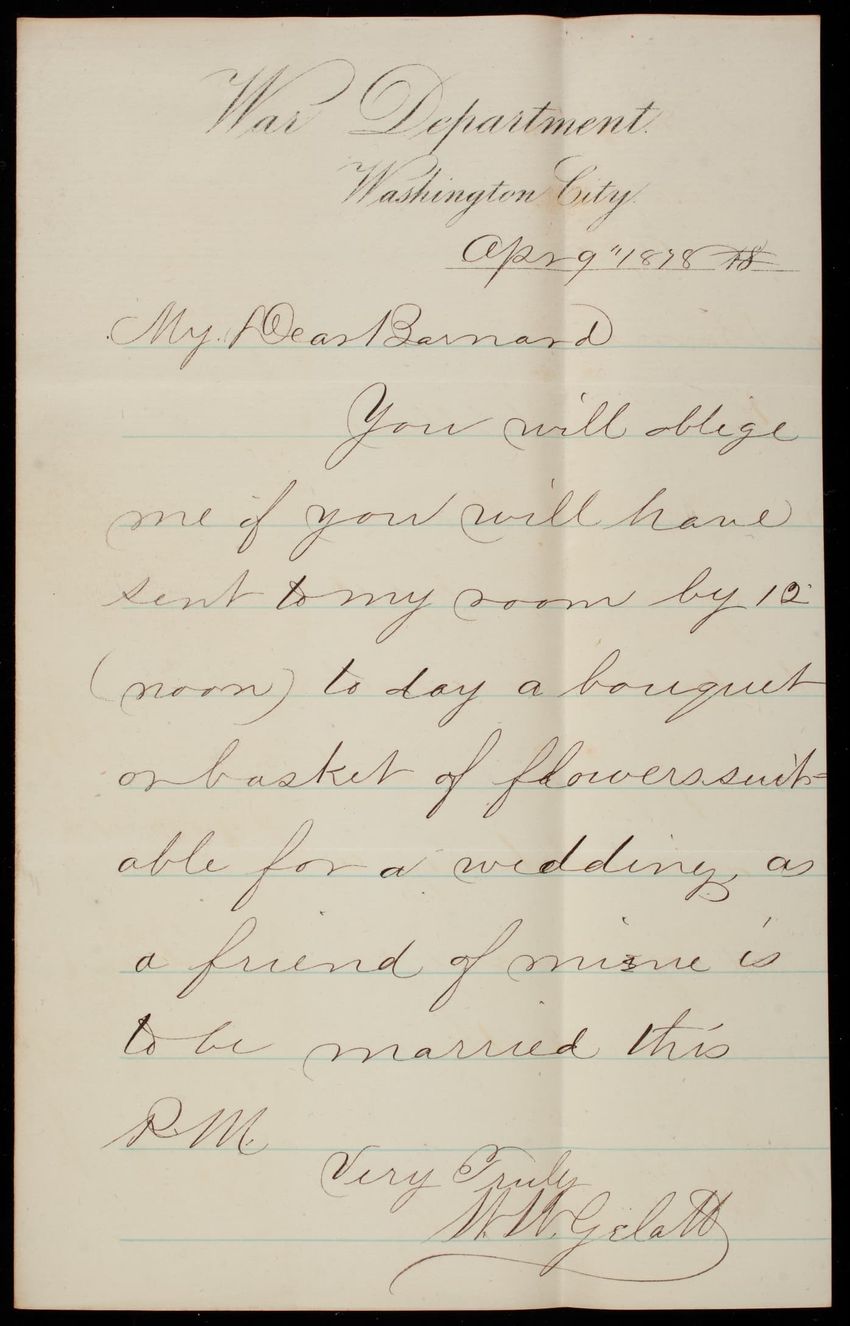 War Department.
Washington City.
Apr 9" 1878
My Dear Barnard
You will oblige
me if you will have
sent to my room by 12
(noon) to day a bouquet
or basket of flowers suit=
able for a wedding, as
a friend of mine is
to be married this
P.M.
Very Truly
W. W. Gelatt